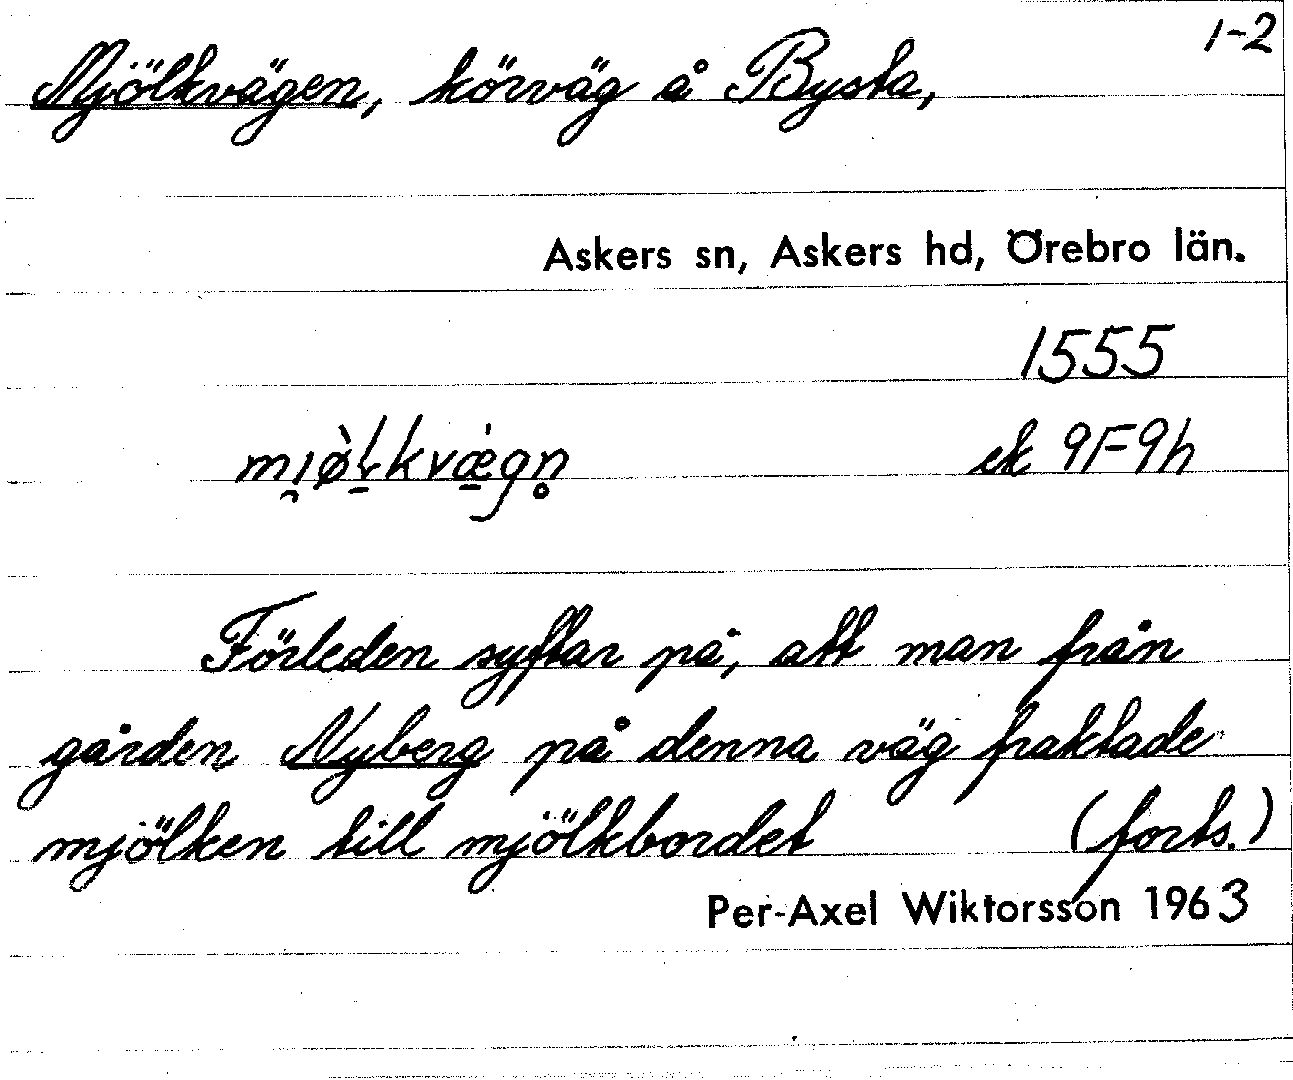 1-2
Mjölkvägen, körväg å Bysta,
Askers sn, Askers hd, Örebro län.
1555
mı̯ø̀ḷkvæ̀gn̥ ek 9F9h
Förleden syftar på, att man från
gården Nyberg på denna väg fraktade
mjölken till mjölkbordet (forts.)
Per-Axel Wiktorsson 1963